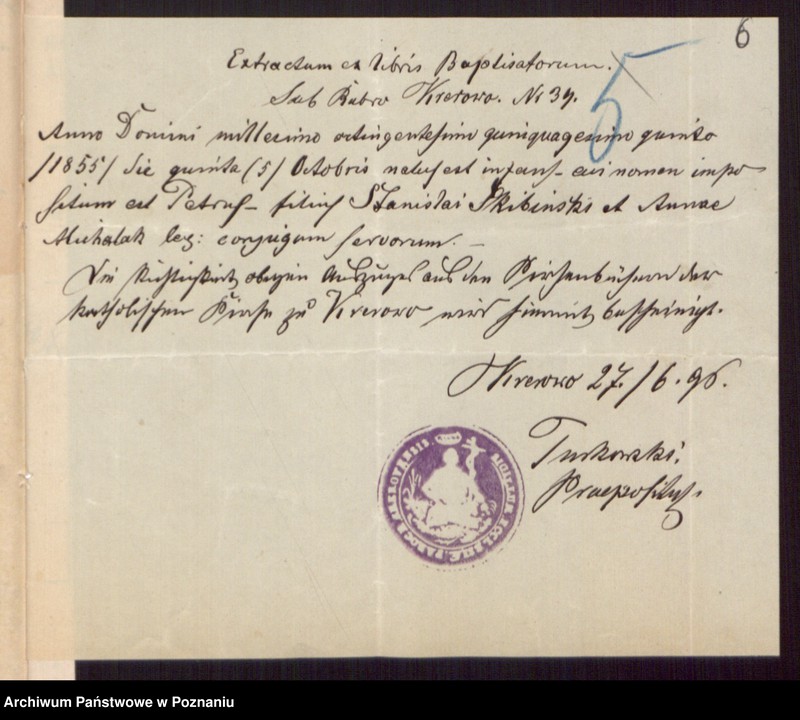 6
Extractum ex libris Baptisatorum.
5
Sub Rubro Wierowo. Nr 39.
Anno Domini millesimo octingentesimo quinquagesimo quinto
/1855/ die quinta (5) Octobris natus est infans cui nomen impo-
situm est Petrus – filius Stanislai Skibinski et Annae
Michalak leg: conjugum servorum. –
Die Richtigkeit obigen Auszuges aus den Kirchenbüchern der
katholischen Kirche zu Wierowo wird hiermit bescheinigt.
Wierowo 27./6. 96.
Turkowski.
Praepositus.
SIGILLUM ECCLESIAE PAROCH
Archiwum Państwowe w Poznaniu